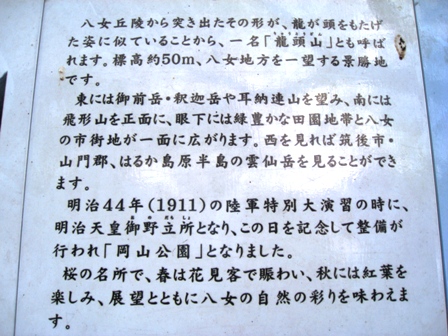 八女丘陵から突き出たその形が、龍が頭をもたげ
た姿に似ていることから、一名「龍頭山」とも呼ば
れます。標高約50m、八女地方を一望する景勝地
です。
東には御前岳・釈迦岳や耳納連山を望み、南には
飛形山を正面に、眼下には緑豊かな田園地帯と八女
の市街地が一面に広がります。西を見れば筑後市・
山門郡、はるか島原半島の雲仙岳を見ることができ
ます。
明治44年(1911)の陸軍特別大演習の時に、
明治天皇御野立所となり、この日を記念して整備が
行われ「岡山公園」となりました。
桜の名所で、春は花見客で賑わい、秋には紅葉を
楽しみ、展望とともに八女の自然の彩りを味わえま
す。